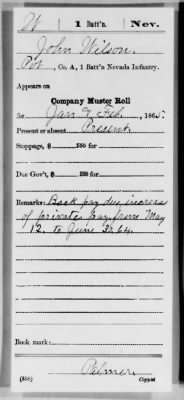 W | 1 Batt'n. | Nev.
John Wilson
Pvt, Co. A, 1 Batt'n Nevada Infantry.
Appears on
Company Muster Roll
for Jan & Feb, 1865.
Present or absent Present
Stoppage, $ 100 for
Due Gov't, $ 100 for
Remarks: Back pay due, increase
of privates pay from May
1 2. to June 30, 64.
Book mark:
Palmer
(358) Copyist